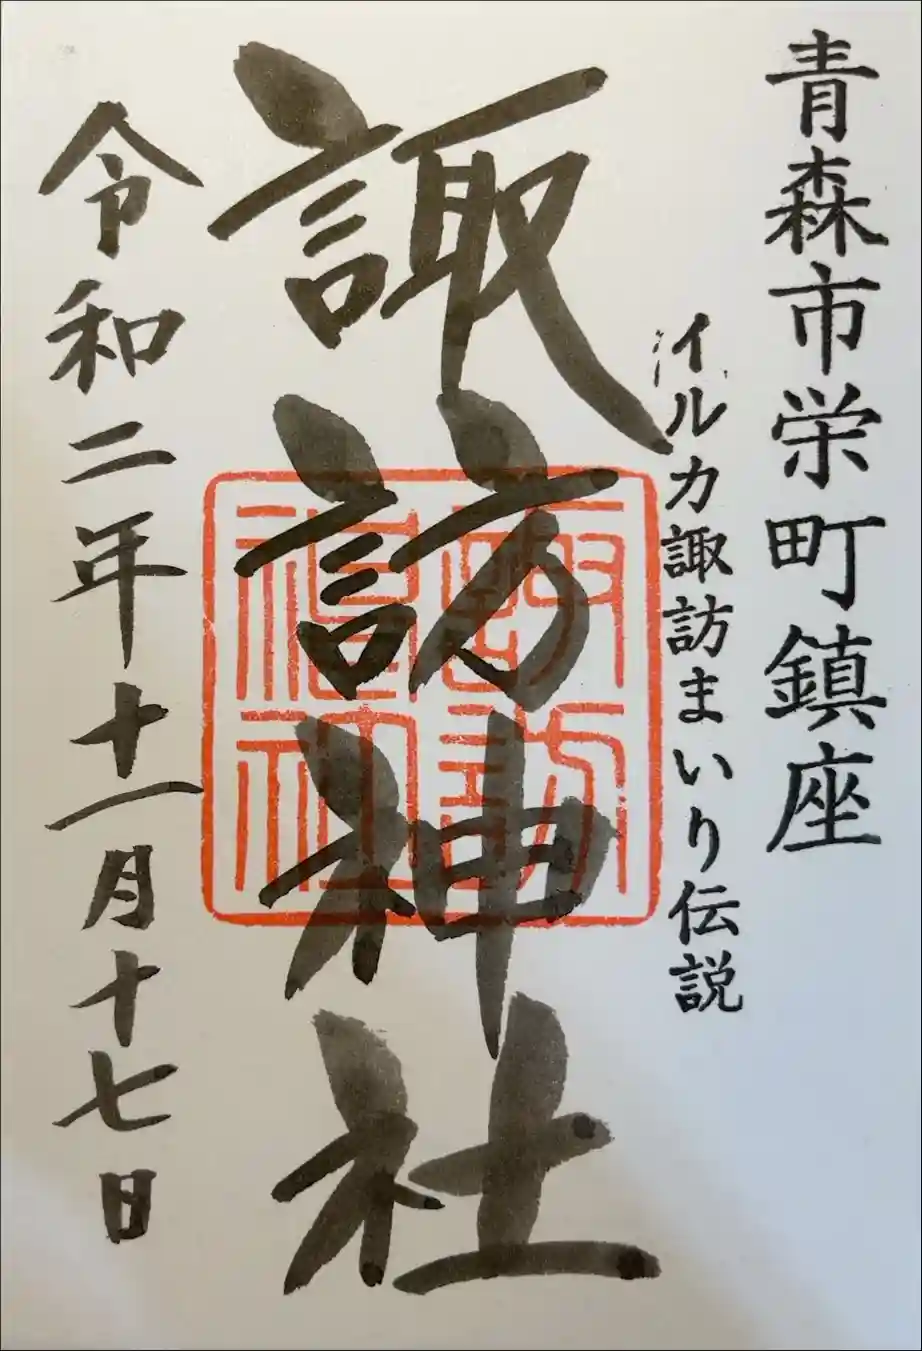 青森市栄町鎮座
イルカ諏訪まいり伝説
諏訪神社
諏訪神社
令和二年十一月十七日